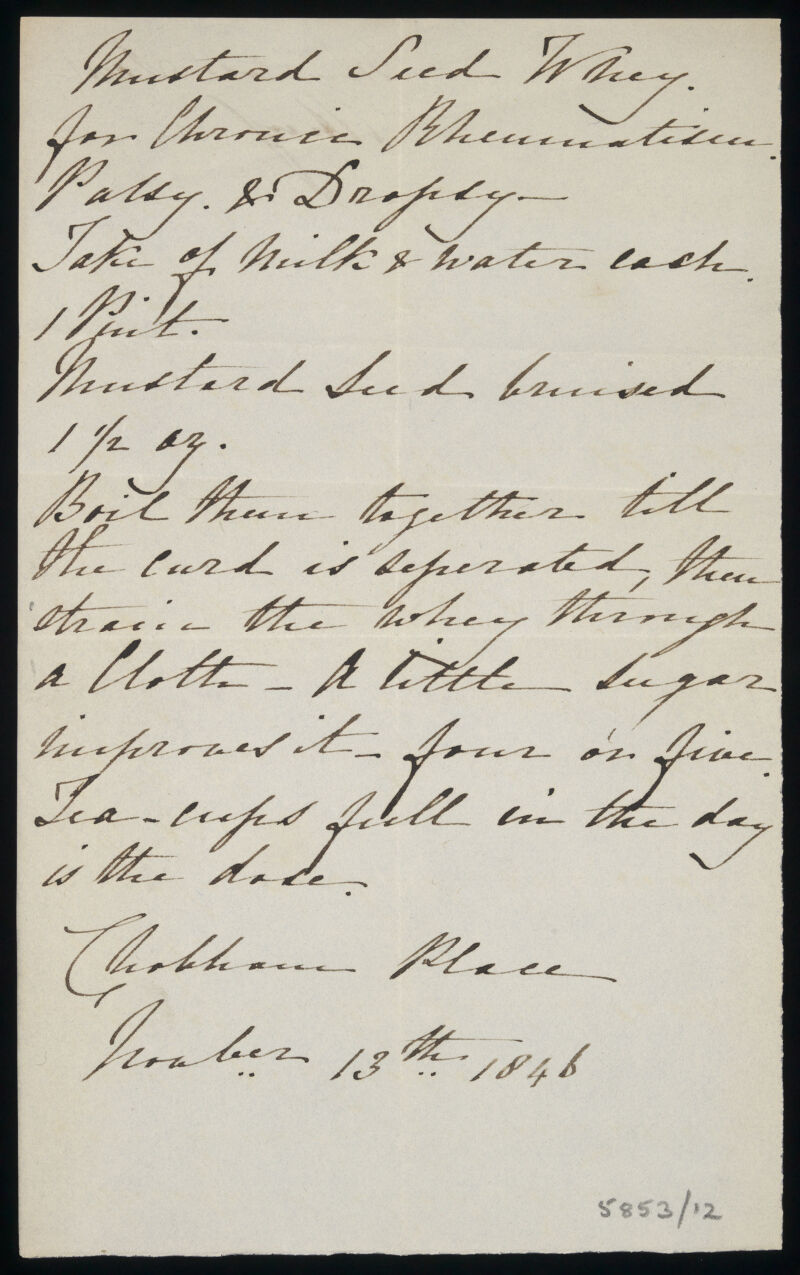 Mustard Seed Whey.
for Chronic Rheumatism.
Palsy. & Dropsy—
Take of Milk & water each.
1 Pint.
Mustard Seed bruised
1 1/2 oz.
Boil them together till
the curd is seperated, then
strain the whey through
a Cloth – A little sugar
improves it – four or five.
Tea-cups full in the day
is the dose.
Chobham Place
Novber 13th 1846
5853/12